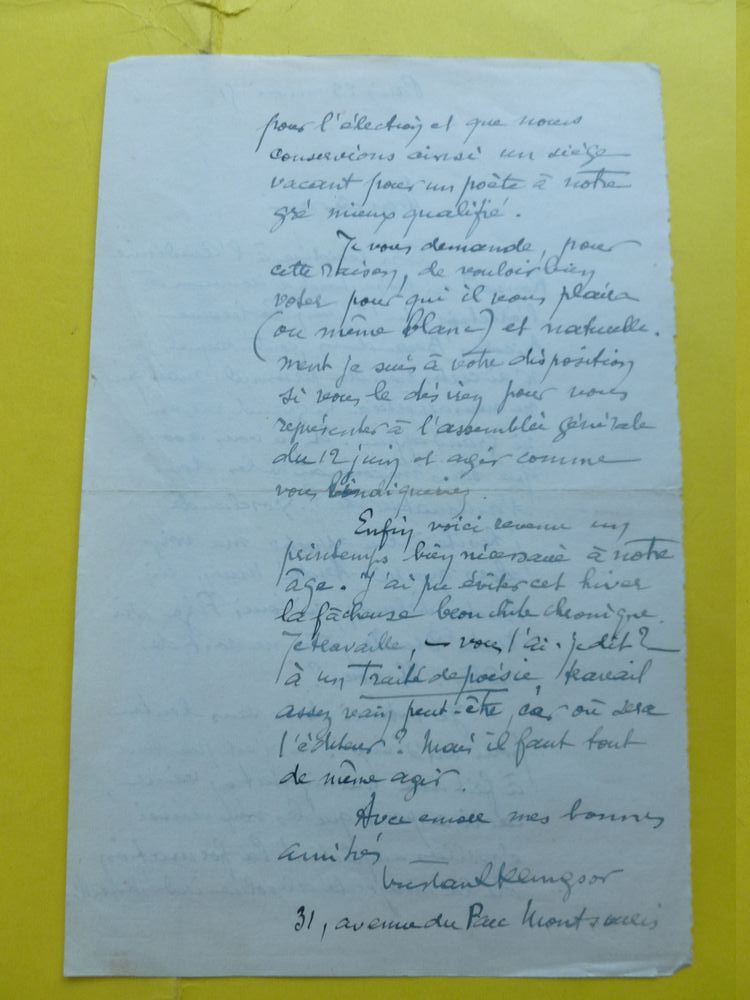 pour l'élection et que nous
conservions ainsi un siège
vacant pour un poète à notre
gré mieux qualifié.
Je vous demande, pour
cette raison, de vouloir bien
voter pour qui il vous plaira
(ou même blanc) et naturelle-
ment je suis à votre disposition
si vous le désirez pour vous
représenter à l'assemblée générale
du 12 juin et agir comme
vous l'indiqueriez.
Enfin voici revenu un
printemps bien nécessaire à notre
âge. J'ai pu éviter cet hiver
la fâcheuse bronchite chronique.
Je travaille, — vous l'ai-je dit?
à un Traité de poésie, travail
assez vain peut-être, car où sera
l'éditeur? Mais il faut tout
de même agir.
Avec encore mes bonnes
amitiés
Tristan Klingsor
31, avenue du Parc Montsouris